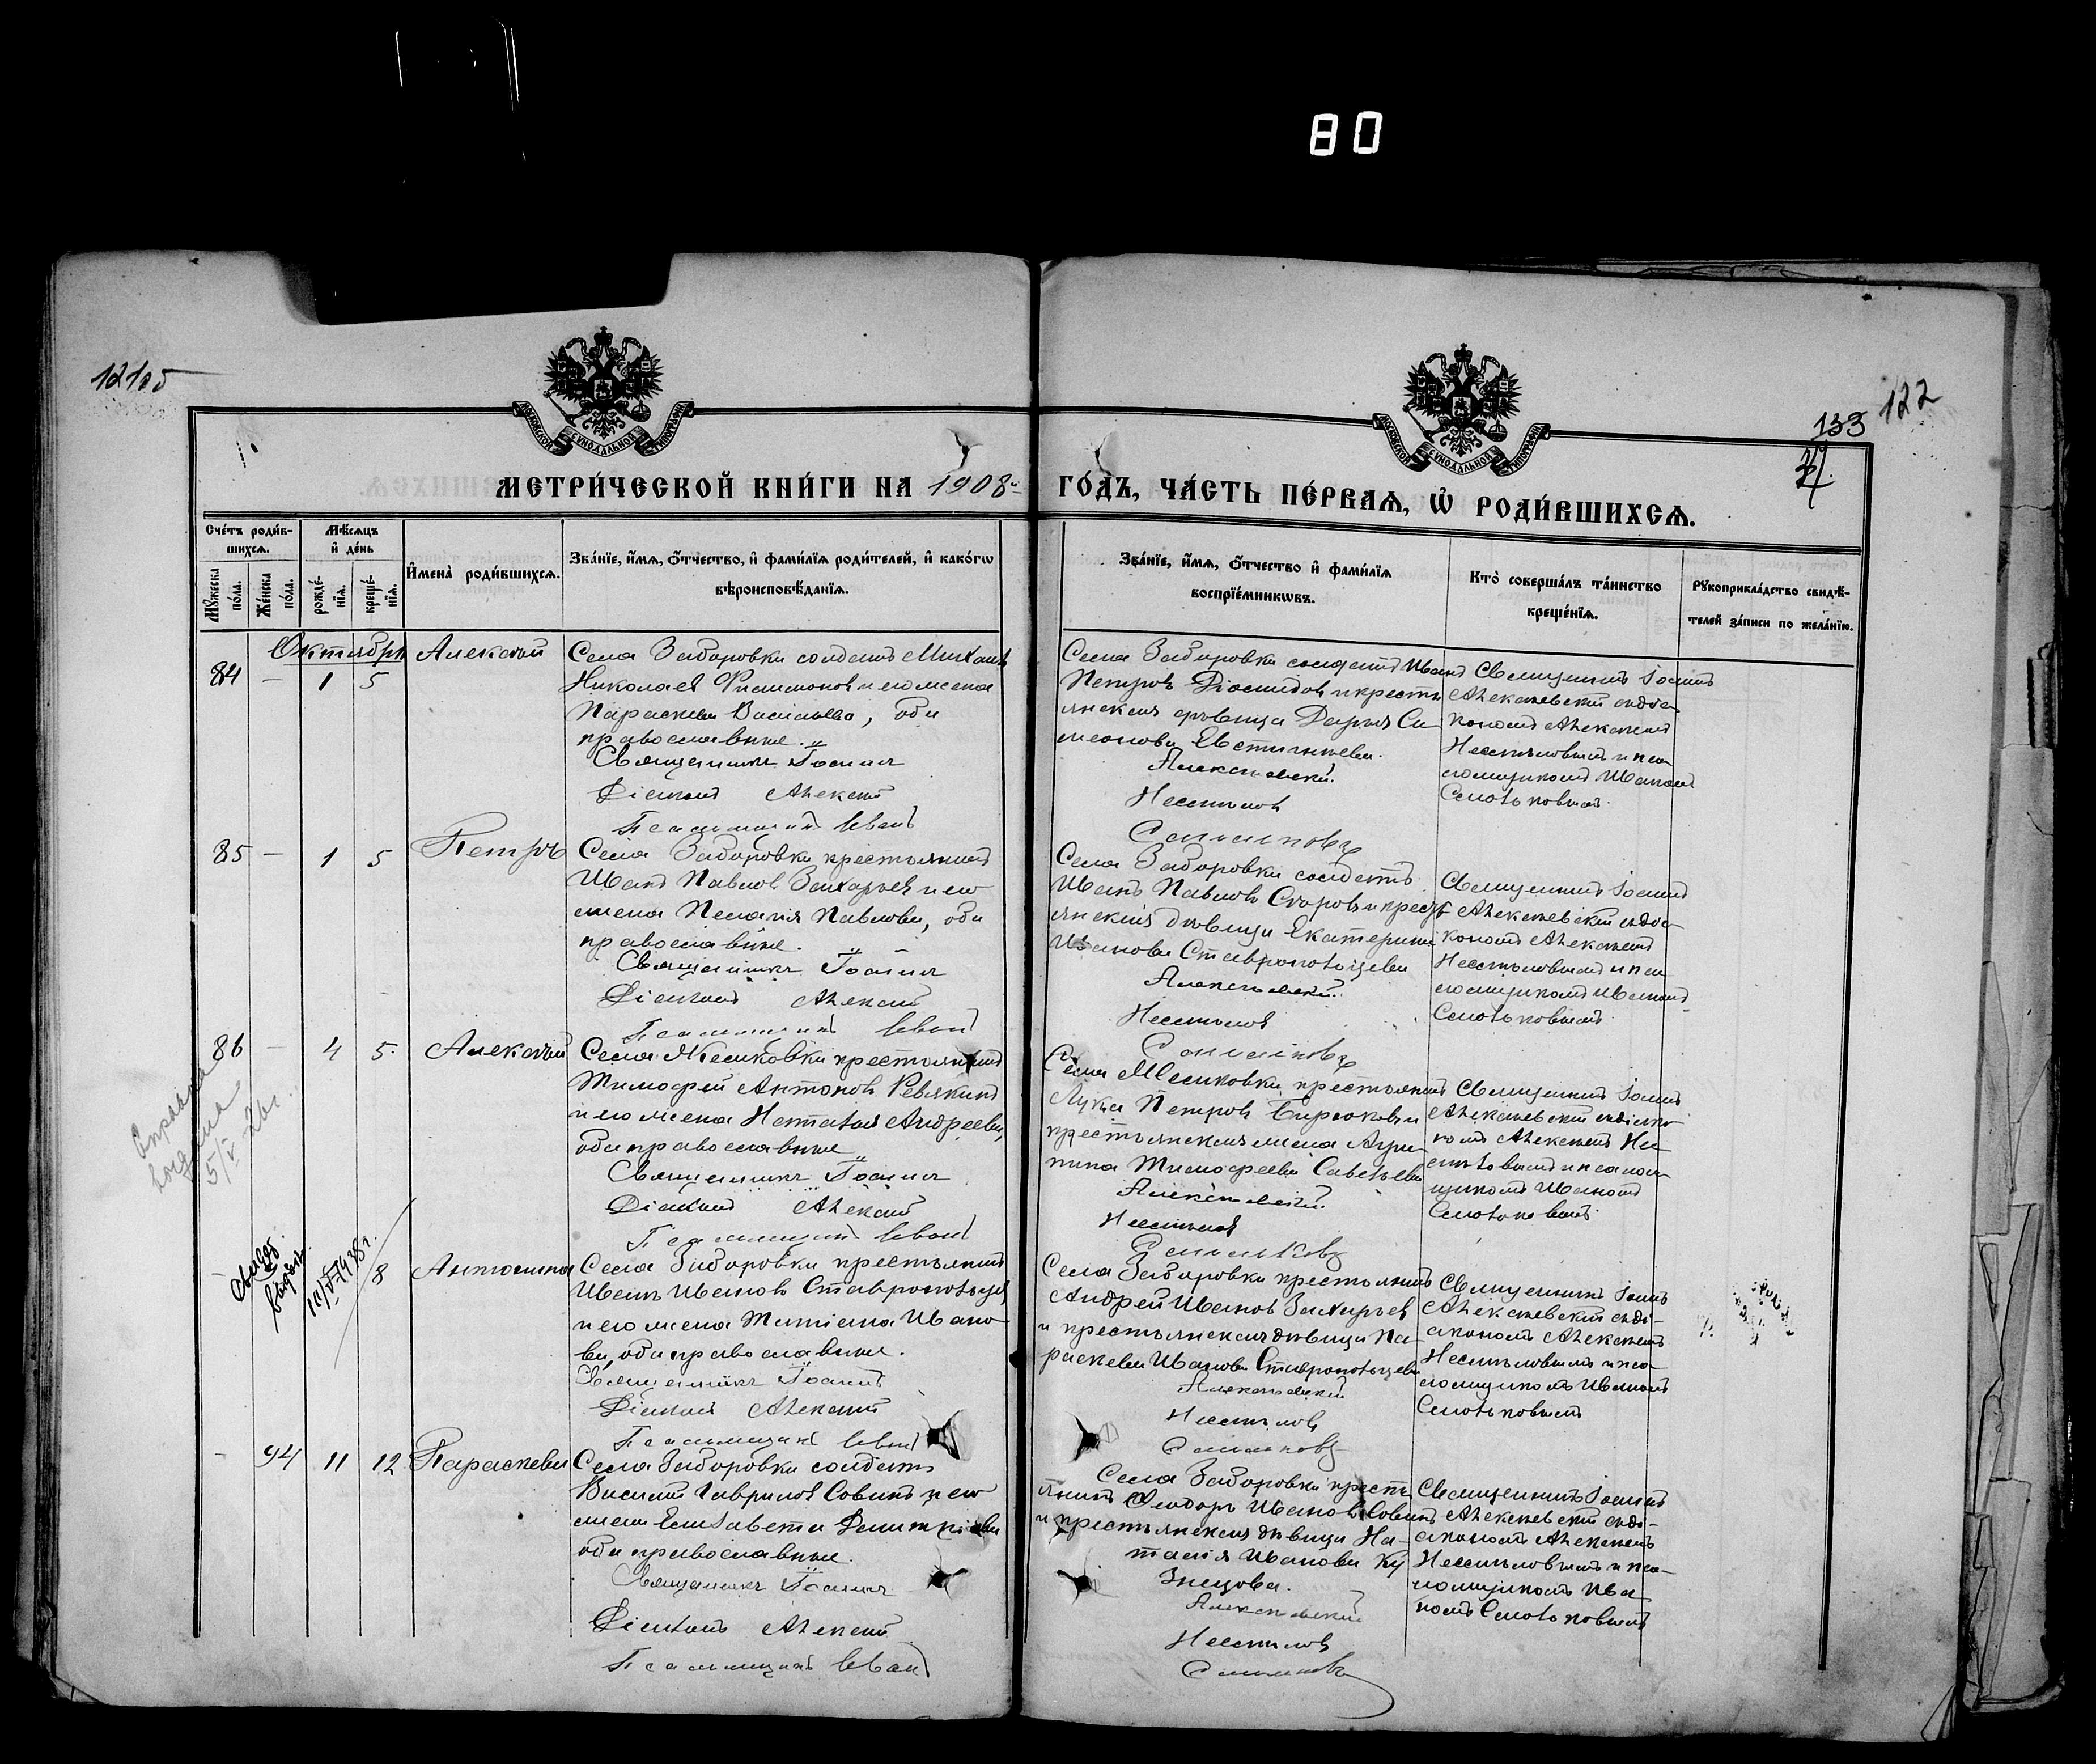 80
121об
122
133
МОСКОВСКОЙ СѴНОДАЛЬНОЙ ТИПОГРАФІИ
МОСКОВСКОЙ СѴНОДАЛЬНОЙ ТИПОГРАФІИ
МЕТРИ́ЧЕСКОЙ КНИ́ГИ НА 1908й ГО́ДЪ, ЧА́СТЬ ПЕ́РВАѦ, Ѡ҆ РОДИ́ВШИХСѦ.
Сче́тъ роди́в-
шихсѧ.
Мꙋ́жеска по́ла.
Же́нска по́ла.
Мѣ́сѧцъ
и҆ де́нь
рожде́-
нїѧ.
креще́-
нїѧ.
И҆мена̀ роди́вшихсѧ.
Зва́нїе, и҆́мѧ, ѻ҆́тчество, и҆ фами́лїѧ роди́телей, и҆ како́гѡ
вѣроисповѣ́данїѧ.
Зва́нїе, и҆́мѧ, ѻ҆́тчество и҆ фами́лїѧ
воспрїе́мникѡвъ.
Кто̀ соверша́лъ та́инство
креще́нїѧ.
Рꙋкоприкла́дство свидѣ́-
телей за́писи по жела́нїю.
Октябрь
84 - 1 5 Алексѣй
Села Заборовки солдатъ Михаилъ
Николаевъ Филимоновъ и его жена
Параскева Васильева, оба
православные.
Священникъ Іоаннъ
Діаконъ Алексѣй
Псаломщикъ Іванъ
Села Заборовки солдатъ Иванъ
Петровъ Діомидовъ и кресть
янская дѣвица Дарья Си
меонова Евстигнѣева.
Алексѣевскій
Несмѣловъ
Священникъ Іоаннъ
Алексѣевскій съ діа
кономъ Алексѣемъ
Несмѣловымъ и пса
ломщикомъ Иваномъ
85 - 1 5 Петръ
Села Заборовки крестьянинъ
Иванъ Павловъ Захарьевъ и его
жена Пелагія Павлова, оба
православные.
Священникъ Іоаннъ
Діаконъ Алексѣй
Псаломщикъ Іванъ
Села Заборовки солдатъ
Иванъ Павловъ Егоровъ и крестъ
янская дѣвица Екатерина
Иванова Ставропольцева
Алексѣевскій
Несмѣловъ
Священникъ Іоаннъ
Алексѣевскій съ діа
кономъ Алексѣемъ
Несмѣловымъ и пса
ломщикомъ Иваномъ
86 - 4 5. Алексѣй
крестьянинъ
Тимофей Антоновъ Ревякинъ
и его жена Наталья Андреева,
оба православные
Священникъ Іоаннъ
Діаконъ Алексѣй
Псаломщикъ Іванъ
крестьянинъ
Лука Петровъ Бирюковъ и
крестьянская жена Агри-
пина Тимофеева Савельева
Алексѣевскій
Несмѣловъ
Священникъ Іоаннъ
Алексѣевскій съ діако
номъ Алексѣемъ Не
смѣловымъ и псалом
щикомъ Иваномъ
8 Антонина
Села Заборовки крестьянинъ
Иванъ Ивановъ Ставропольцевъ
и его жена Татіана Ивано
ва, оба православные.
Священникъ Іоаннъ
Діаконъ Алексѣй
Псаломщикъ Іванъ
Села Заборовки крестьянинъ
Андрей Ивановъ Захарьевъ
и крестьянская дѣвица Па-
раскева Иванова Ставропольцева
Алексѣевскій
Несмѣловъ
Священникъ Іоаннъ
Алексѣевскій съ ді-
акономъ Алексѣемъ
Несмѣловымъ и пса-
ломщикомъ Иваномъ
- 94 11 12 Параскева
Села Заборовки солдатъ
Василій Гавриловъ Совинъ и его
жена Елизавета Димитріева
оба православные.
Священникъ Іоаннъ
Діаконъ Алексѣй
Псаломщикъ Іванъ
Села Заборовки кресть
янинъ Феодоръ Ивановъ Совинъ
и крестьянская дѣвица На-
талія Иванова Ку
знецова.
Алексѣевскій
Несмѣловъ
Священникъ Іоаннъ
Алексѣевскій съ ді-
акономъ Алексѣемъ
Несмѣловымъ и пса-
ломщикомъ Ива
номъ